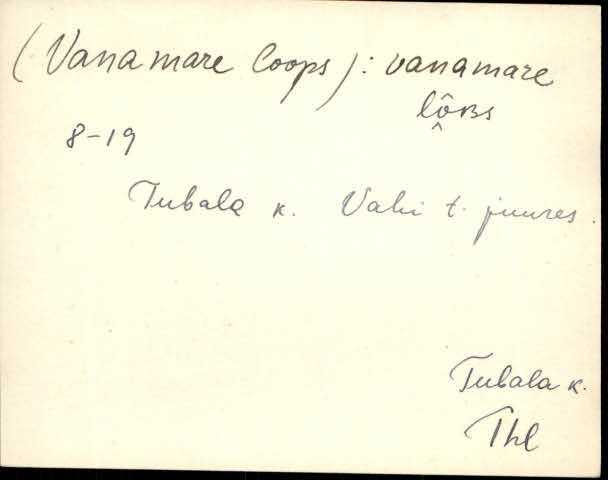 (Vanamare loops): vanamare
lô̭ʙs
8-19
Tubala k. Vahi t. juures.
Tubala k.
Phl